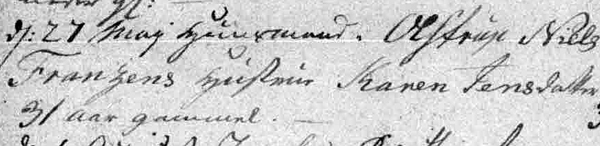 d: 27 Maj Huusmand. Olstrup Niels
Franzens Hustrue Karen Jensdatter
31 aar gammel. —